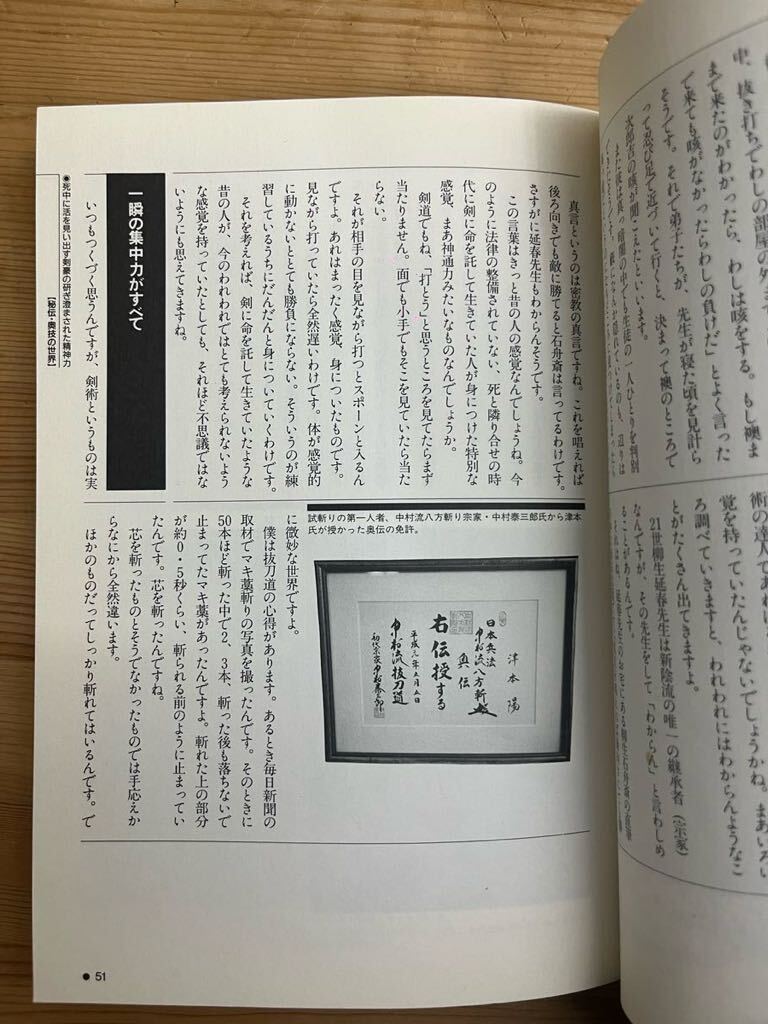 中、抜き打ちでわしの部屋の外ま
まで来たのがわかったら、わしは咳をする。もし襖ま
で来ても咳がなかったらわしの負けだ」とよく言った
そうです。それで弟子たちが、先生が寝た頃を見計ら
って忍び足で近づいて行くと、決まって襖のところで
次郎吉の咳が聞こえたといいます。
術の達人であれ
覚を持っていたんじゃないでしょうかね。まあいろい
ろ調べていきますと、われわれにはわからんようなこ
とがたくさん出てきますよ。
21世柳生延春先生は新陰流の唯一の継承者(宗家)
なんですが、その先生をして「わからん」と言わしめ
ることがあるんです。
真言というのは密教の真言ですね。これを唱えれば
後ろ向きでも敵に勝てると石舟斎は言ってるわけです。
さすがに延春先生もわからんそうです。
この言葉はきっと昔の人の感覚なんでしょうね。今
のように法律の整備されていない、死と隣り合せの時
代に剣に命を託して生きていた人が身につけた特別な
感覚、まあ神通力みたいなものなんでしょうか。
剣道でもね、「打とう」と思うところを見てたらまず
当たりません。面でも小手でもそこを見ていたら当た
らない。
それが相手の目を見ながら打つとスポーンと入るん
ですよ。あれはまったく感覚、身についたものです。
見ながら打っていたら全然遅いわけです。体が感覚的
に動かないととても勝負にならない。そういうのが練
習しているうちにだんだんと身についていくわけです。
それを考えれば、剣に命を託して生きていたような
昔の人が、今のわれわれではとても考えられないよう
な感覚を持っていたとしても、それほど不思議ではな
いようにも思えてきますね。
一瞬の集中力がすべて
いつもつくづく思うんですが、剣術というものは実
試斬りの第一人者、中村流八方斬り宗家・中村泰三郎氏から津本
氏が授かった奥伝の免許。
津本陽
日本兵法
中村流八方斬
奥伝
右伝授する
平成元年五月五日
中村流抜刀道
初代宗家中村泰三郎
に微妙な世界ですよ。
僕は抜刀道の心得があります。あるとき毎日新聞の
取材でマキ藁斬りの写真を撮ったんです。そのときに
50本ほど斬った中で2、3本、斬った後も落ちないで
止まってたマキ藁があったんですよ。斬れた上の部分
が約0・5秒くらい、斬られる前のように止まってい
たんです。芯を斬ったんですね。
芯を斬ったものとそうでなかったものでは手応えか
らなにから全然違います。
ほかのものだってしっかり斬れてはいるんです。で
●死中に活を見い出す剣豪の研ぎ澄まされた精神力
【秘伝・奥技の世界】
● 51